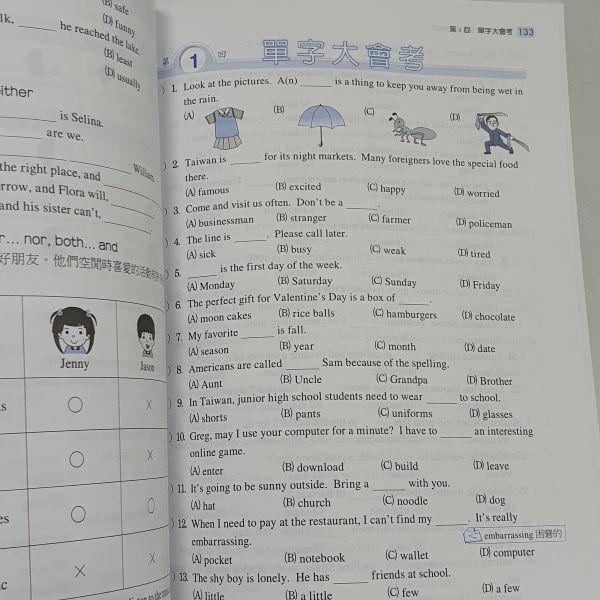 (B) safe
lk, ______ he reached the lake.
(D) funny
(B) least
(D) usually
either
______ is Selina.
______ are we.
the right place, and ______
William
orrow, and Flora will, ______.
and his sister can't, ______.
r… nor, both… and
好朋友。他們空閒時喜愛的活動
Jenny
Jason
ts
○ ×
○ ×
es
○ ○
ic
× ×
第 1 回 單字大會考 133
第 1 回 單字大會考
) 1. Look at the pictures. A(n) ______ is a thing to keep you away from being wet in
the rain.
(A) (B) (C) (D)
) 2. Taiwan is ______ for its night markets. Many foreigners love the special food
there.
(A) famous (B) excited (C) happy (D) worried
) 3. Come and visit us often. Don't be a ______.
(A) businessman (B) stranger (C) farmer (D) policeman
) 4. The line is ______. Please call later.
(A) sick (B) busy (C) weak (D) tired
) 5. ______ is the first day of the week.
(A) Monday (B) Saturday (C) Sunday (D) Friday
) 6. The perfect gift for Valentine's Day is a box of ______.
(A) moon cakes (B) rice balls (C) hamburgers (D) chocolate
) 7. My favorite ______ is fall.
(A) season (B) year (C) month (D) date
) 8. Americans are called ______ Sam because of the spelling.
(A) Aunt (B) Uncle (C) Grandpa (D) Brother
) 9. In Taiwan, junior high school students need to wear ______ to school.
(A) shorts (B) pants (C) uniforms (D) glasses
) 10. Greg, may I use your computer for a minute? I have to ______ an interesting
online game.
(A) enter (B) download (C) build (D) leave
) 11. It's going to be sunny outside. Bring a ______ with you.
(A) hat (B) church (C) noodle (D) dog
) 12. When I need to pay at the restaurant, I can't find my ______. It's really
embarrassing.
embarrassing 困窘的
(A) pocket (B) notebook (C) wallet (D) computer
) 13. The shy boy is lonely. He has ______ friends at school.
(A) little (B) a little (C) few (D) a few